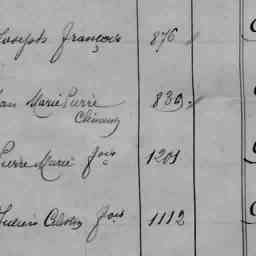 Joseph françois 876
Jean Marie Pierre 839
Clément
Pierre Marie fois 1201
Julien Célestin fois 1112